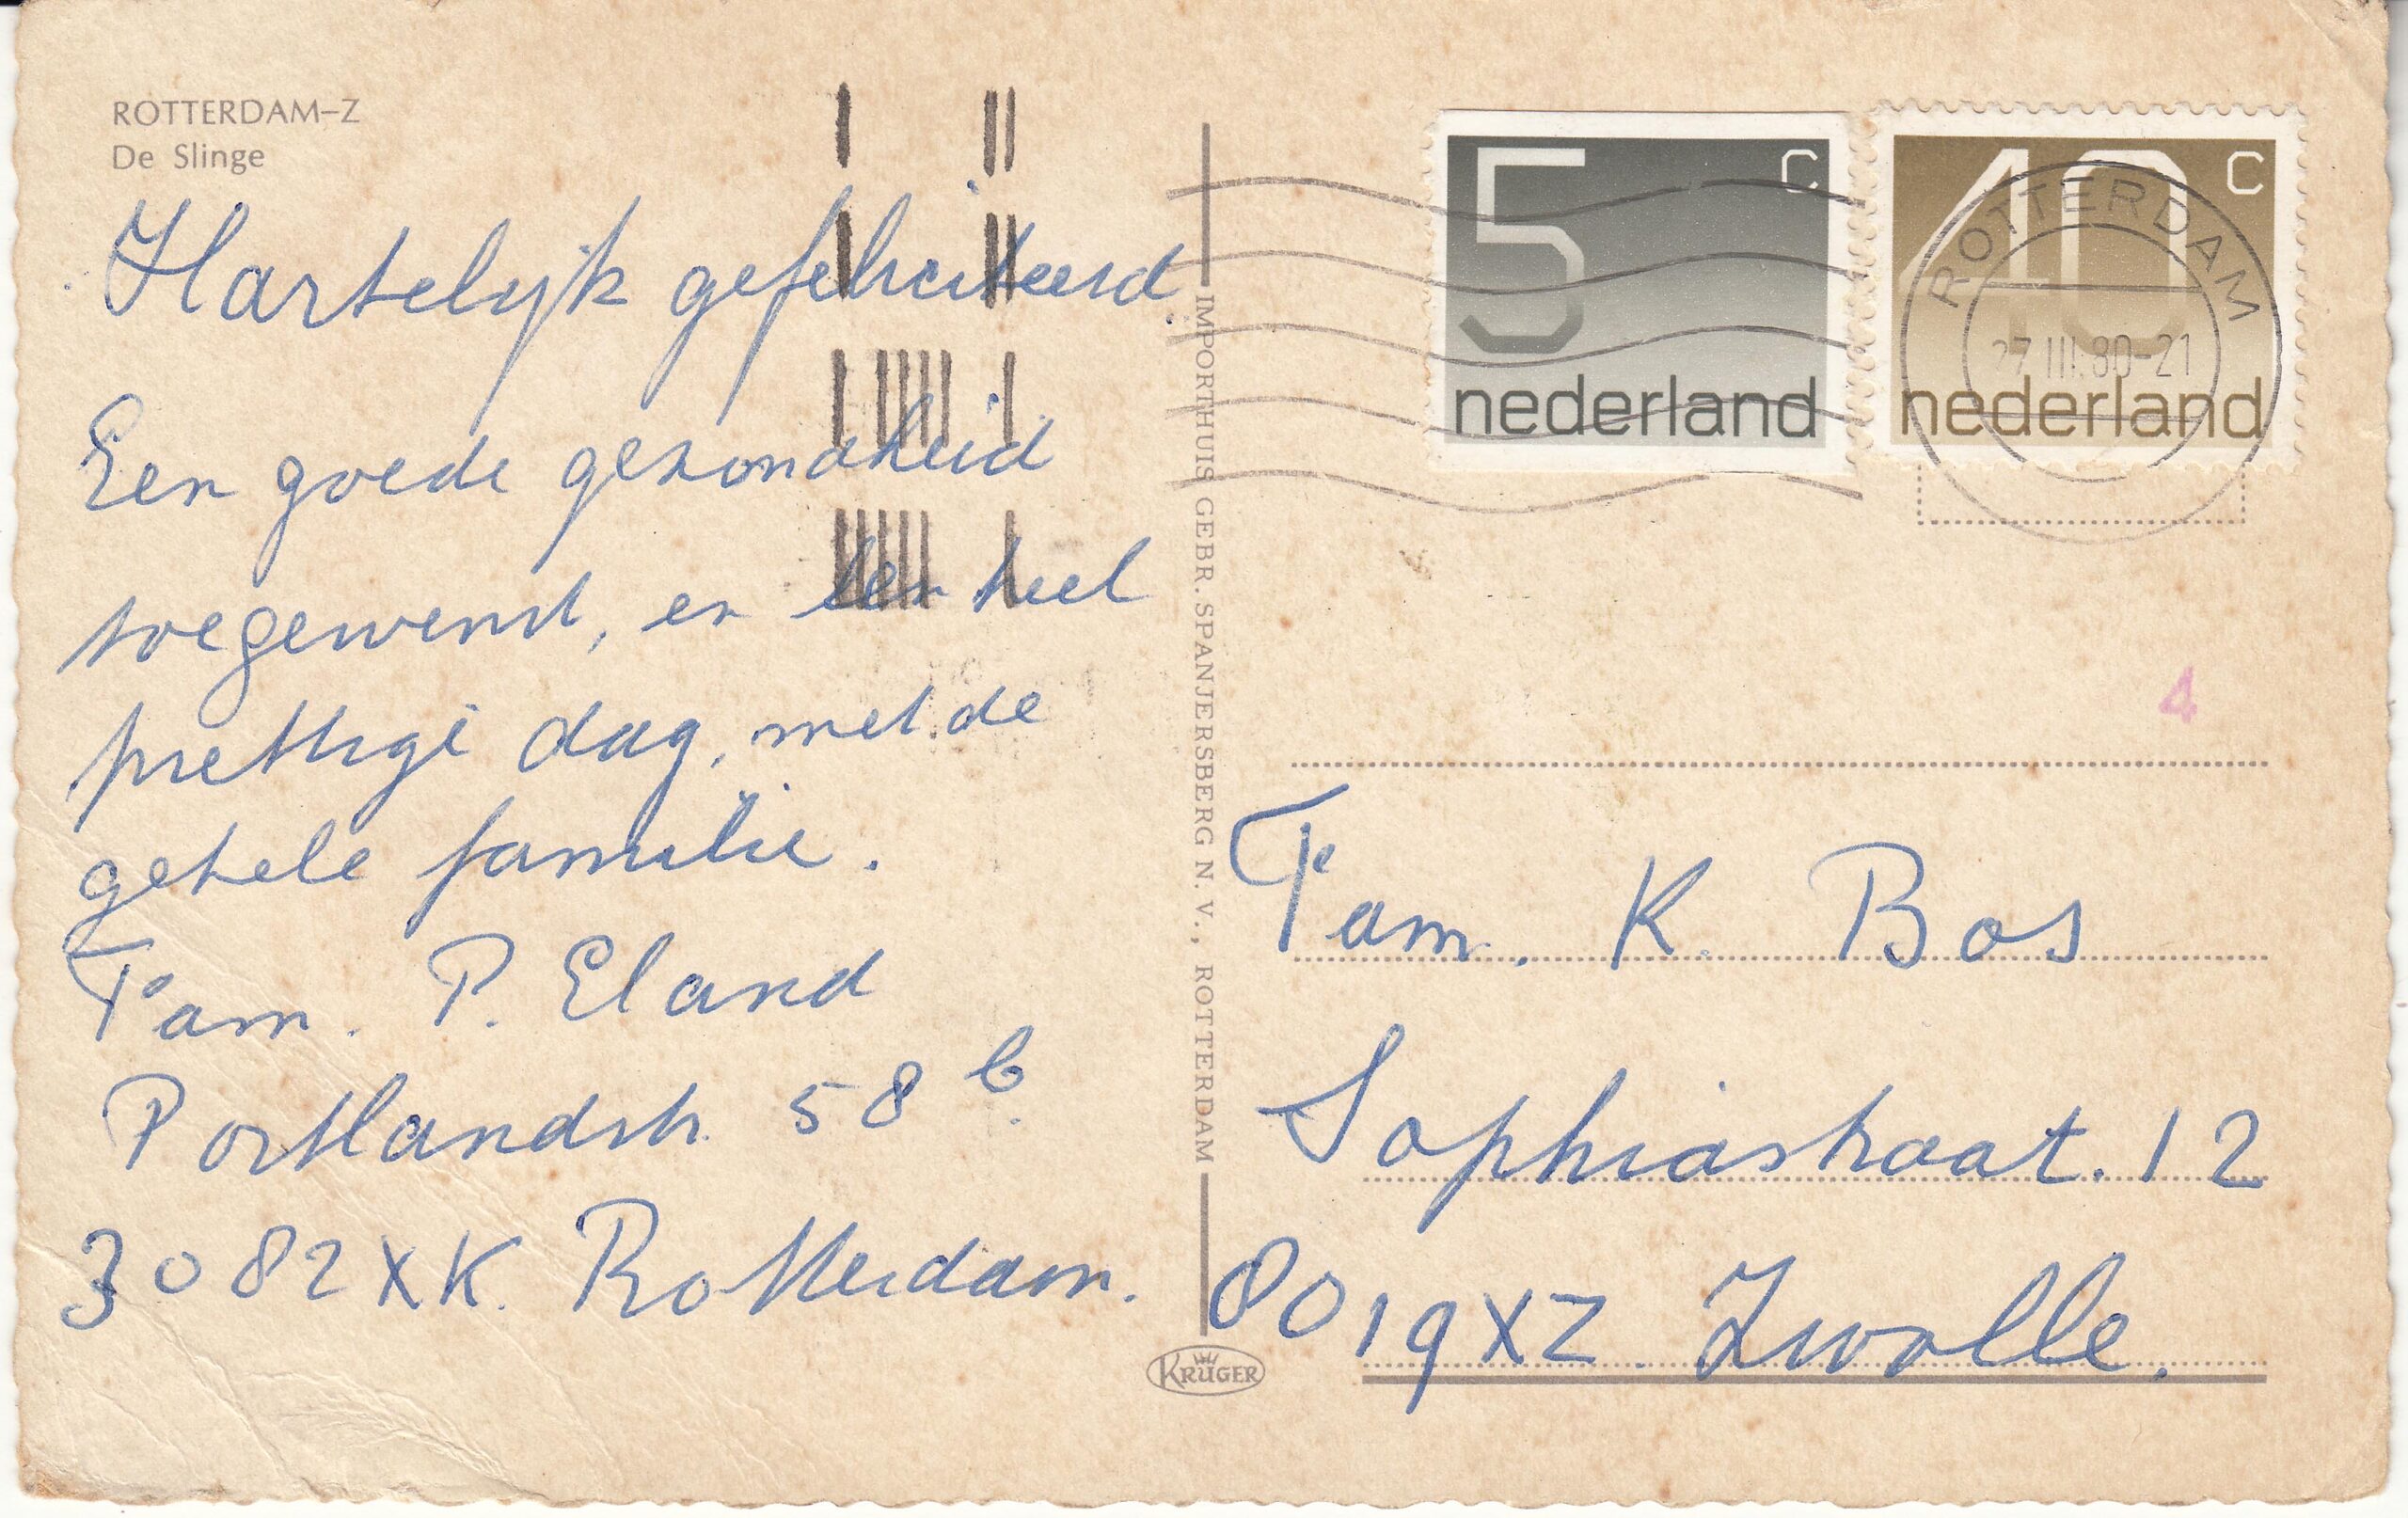 ROTTERDAM-Z
De Slinge
Hartelijk gefeliciteerd.
Een goede gezondheid
toegewenst, en een heel
prettige dag, met de
gehele familie.
Fam. P. Eland
Portlandstr. 58 b.
3082 XK. Rotterdam.
IMPORTHUIS GEBR. SPANJERSBERG N. V., ROTTERDAM
KRÜGER
5 c
nederland
40 c
nederland
ROTTERDAM
27 III.80-21
4
Fam. K. Bos
Sophiastraat. 12
8019 XZ. Zwolle.